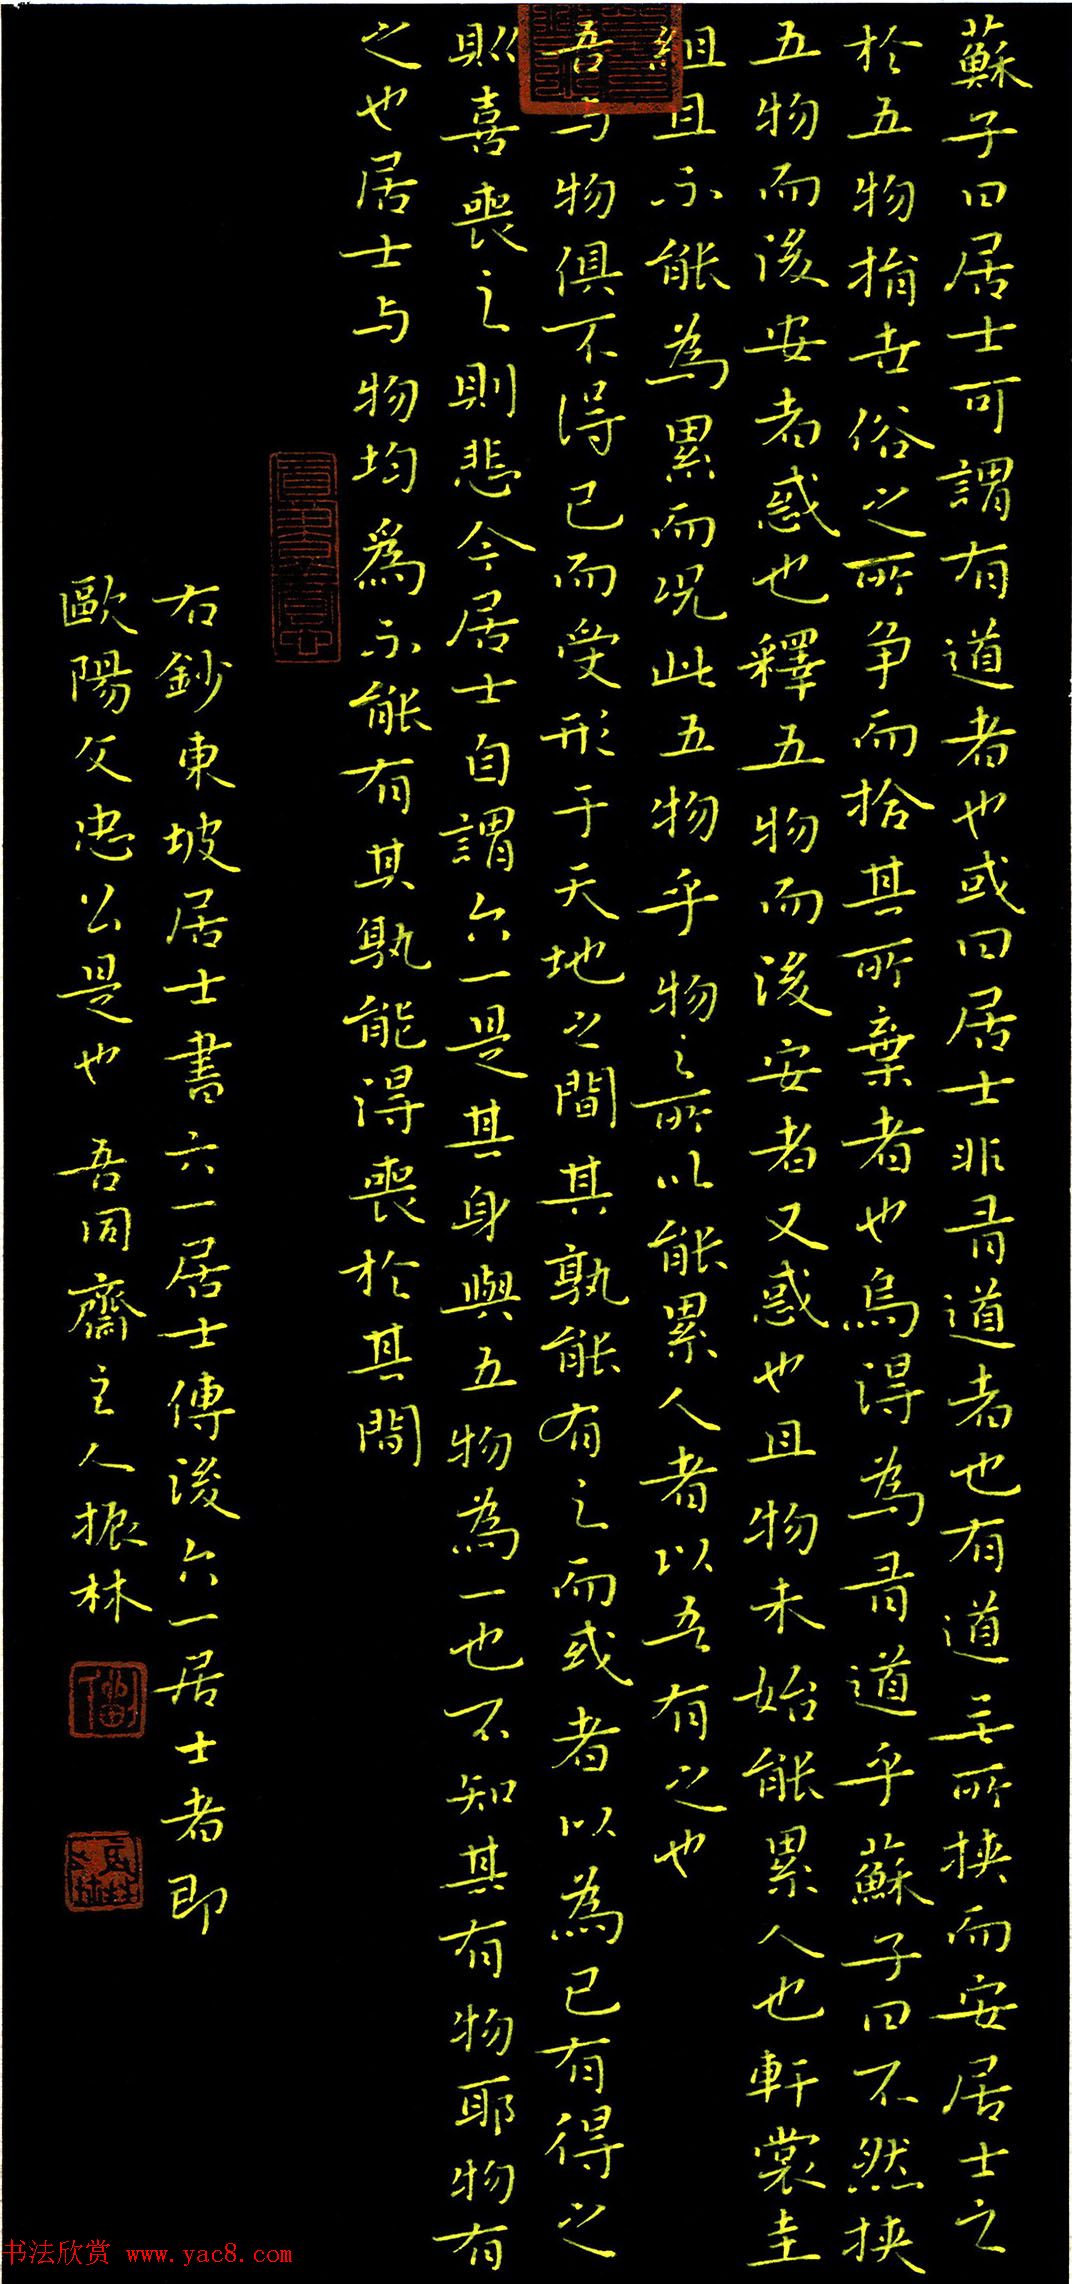 蘇子曰居士可謂有道者也或曰居士非有道者也有道无所挾而安居士之
於五物捐世俗之所争而拾其所棄者也烏得為有道乎蘇子曰不然挾
五物而後安者惑也釋五物而後安者又惑也且物未始能累人也軒裳圭
組且不能為累而况此五物乎物之所以能累人者以吾有之也
吾与物俱不得已而受形于天地之間其孰能有之而或者以為已有得之
則喜喪之則悲今居士自謂六一是其身與五物為一也不知其有物耶物有
之也居士与物均為不能有其孰能得喪於其間
右鈔東坡居士書六一居士傳後六一居士者即
歐陽文忠公是也 吾同齋主人振林
书法欣赏 www.yac8.com